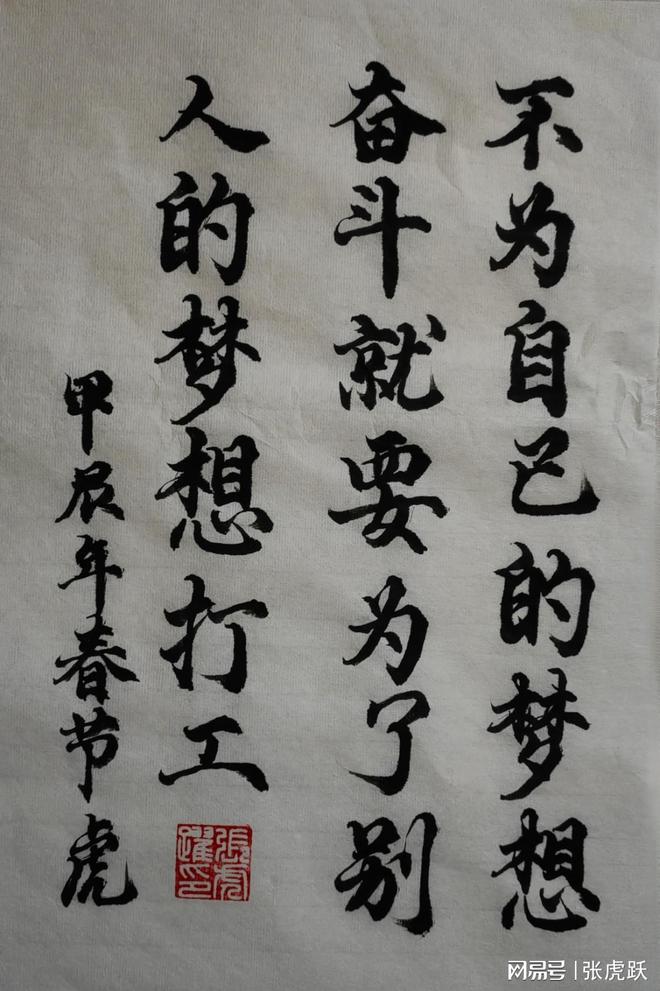 不为自己的梦想
奋斗就要为了别
人的梦想打工
甲辰年春节虎
張虎
躍印
网易号 | 张虎跃